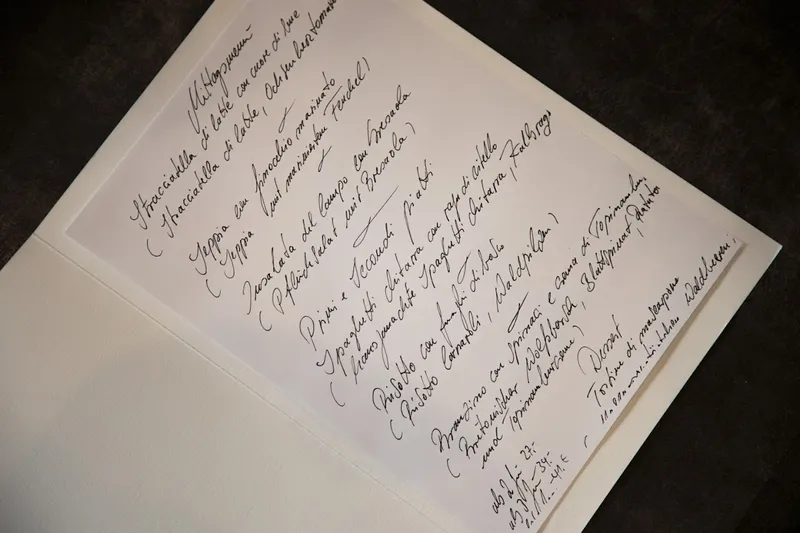 Mittagsmenü
Stracciatella di latte con cuore di bue
(Stracciatella di latte, Ochsenherztomate
Seppia con finocchio marinato
(Seppia mit mariniertem Fenchel)
Insalata del campo con Bresaola
(Pflücksalat mit Bresaola)
Primi e Secondi piatti
Spaghetti chitarra con ragu di vitello
(hausgemachte Spaghetti chitarra, Kalbsragu
Risotto con funghi di bosco
(Risotto carnaroli, Waldpilzen)
Branzino con spinaci e crema di Topinambur
(Bretonischer Wolfsbarsch, Blattspinat
und Topinamburcreme)
Dessert
Tortino di mascarpone
Waldbeeren
als 27.-
als 34.-
41.€